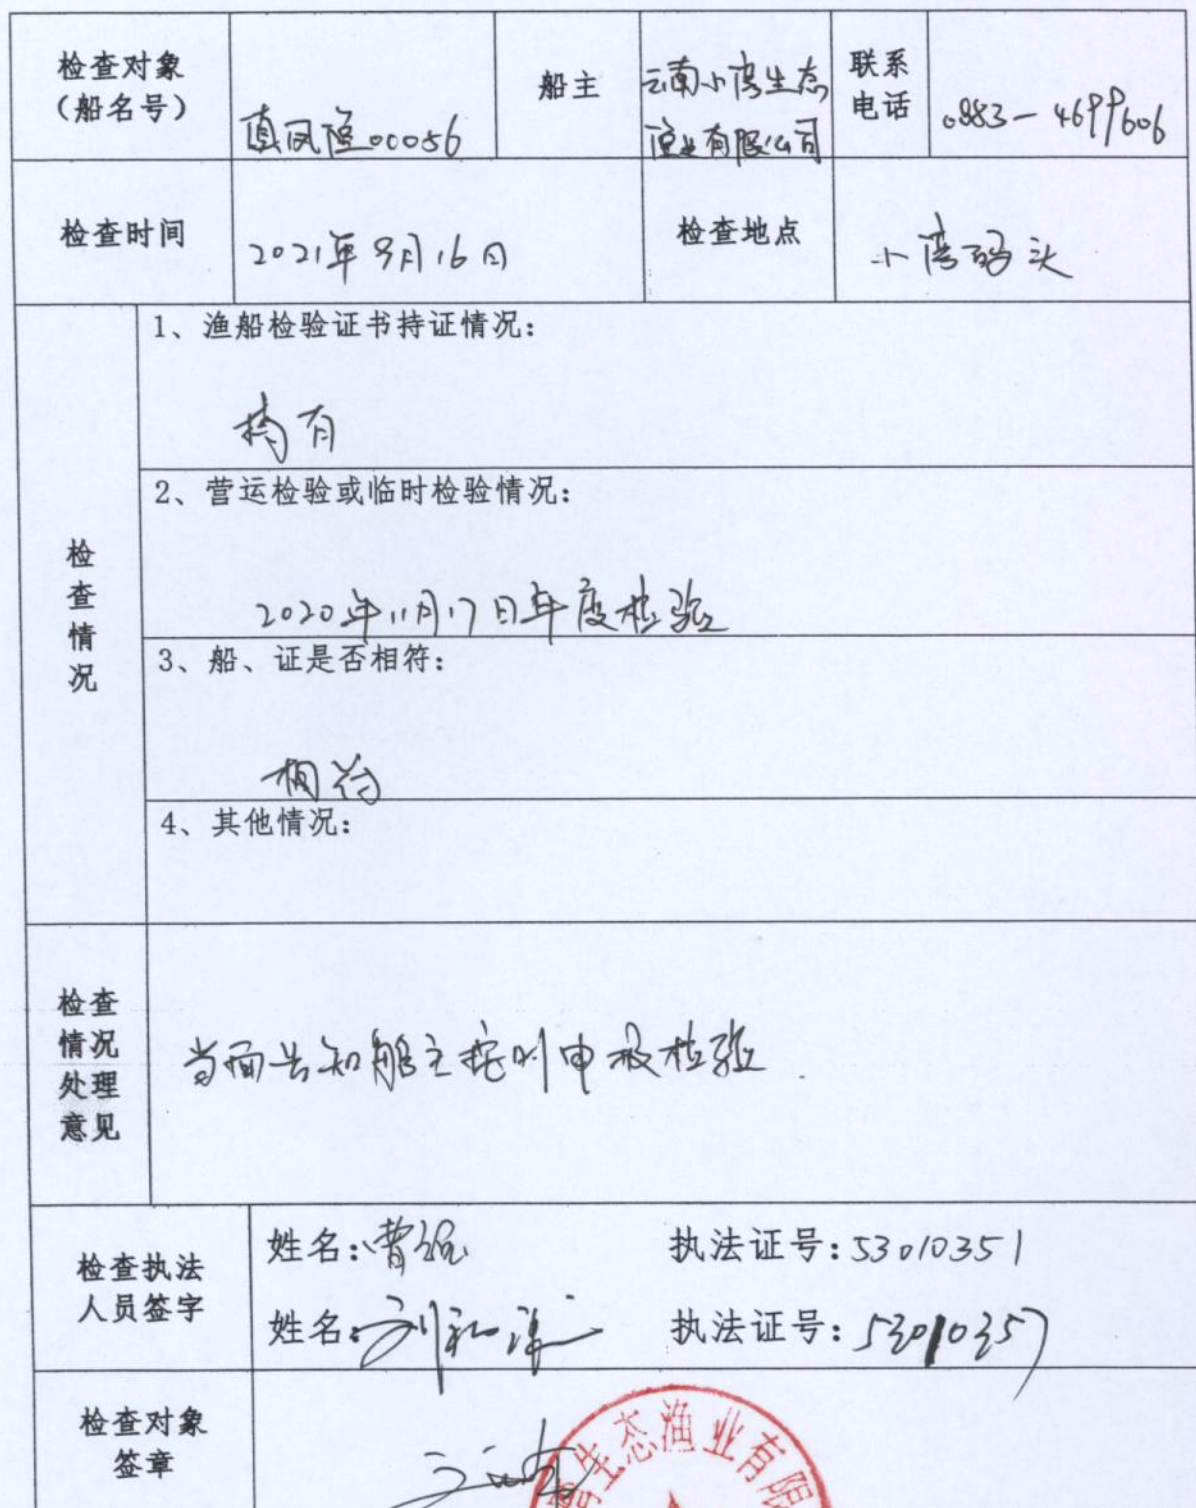 检查对象
（船名号）
滇凤渔00056
船主
云南小湾生态
渔业有限公司
联系
电话
0883-4699606
检查时间
2021年9月16日
检查地点
小湾码头
检查情况
1、渔船检验证书持证情况：
持有
2、营运检验或临时检验情况：
2020年11月17日年度检验
3、船、证是否相符：
相符
4、其他情况：
检查
情况
处理
意见
当面告知船主按时申报检验
检查执法
人员签字
姓名：曹
执法证号：53010351
姓名：刘
执法证号：53010357
检查对象
签章
湾生态渔业有限